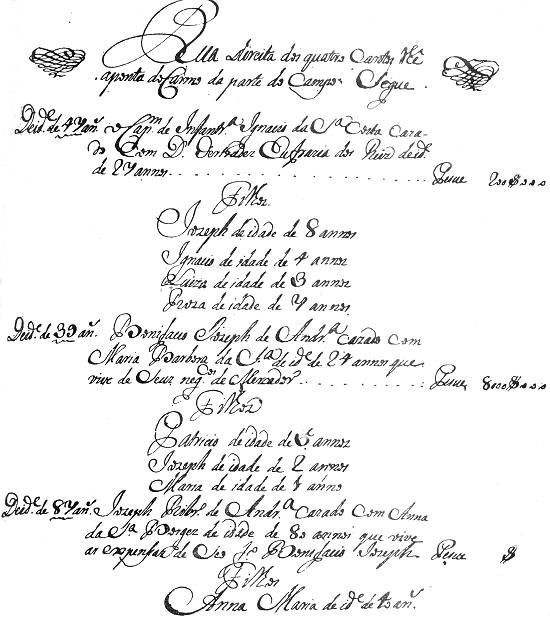 Rua direita dos quatro Cantos the
aponta do Carmo da parte do Campo Segue
De id.e de 47 an. o Cap.m de Infantr.a Ignacio da S.a Costa Caza-
do Com D. Eufrazia dos Reis de id.
de 27 annos . . . . . . . . . . . . . . . . Pesue 200$000
Filhos
Jozeph de idade de 8 annos
Ignacio de idade de 4 annos
Luiza de idade de 3 annos
Roza de idade de 7 annos
De id.e de 39 an. Bonifacio Jozeph de Andr.a Cazado com
Maria Barbora da S.a de id.e de 24 annos que
vive de Seuz neg.cos de Mercador . . . . . . Pesue 8000$000
Filhos
Patricio de idade de 6 annos
Jozeph de idade de 2 annos
Maria de idade de 1 anno
De id.e de 87 an. Jozeph Ribr.o de Andr.a Cazado Com Anna
da S.a Borgez de idade de 80 annos que vive
as expensas de Seo f.o Bonifacio Jozeph Pesue $
Filhos
Anna Maria de id.e de 40 an.